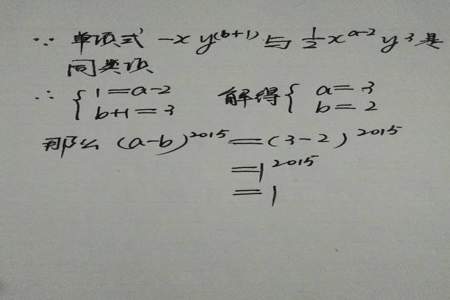 ∵ 单项式 -xy^(b+1) 与 1/2 x^(a-2) y^3 是
同类项
∴ { 1=a-2 解得 { a=3
b+1=3 b=2
那么 (a-b)^2015 =(3-2)^2015
=1^2015
=1